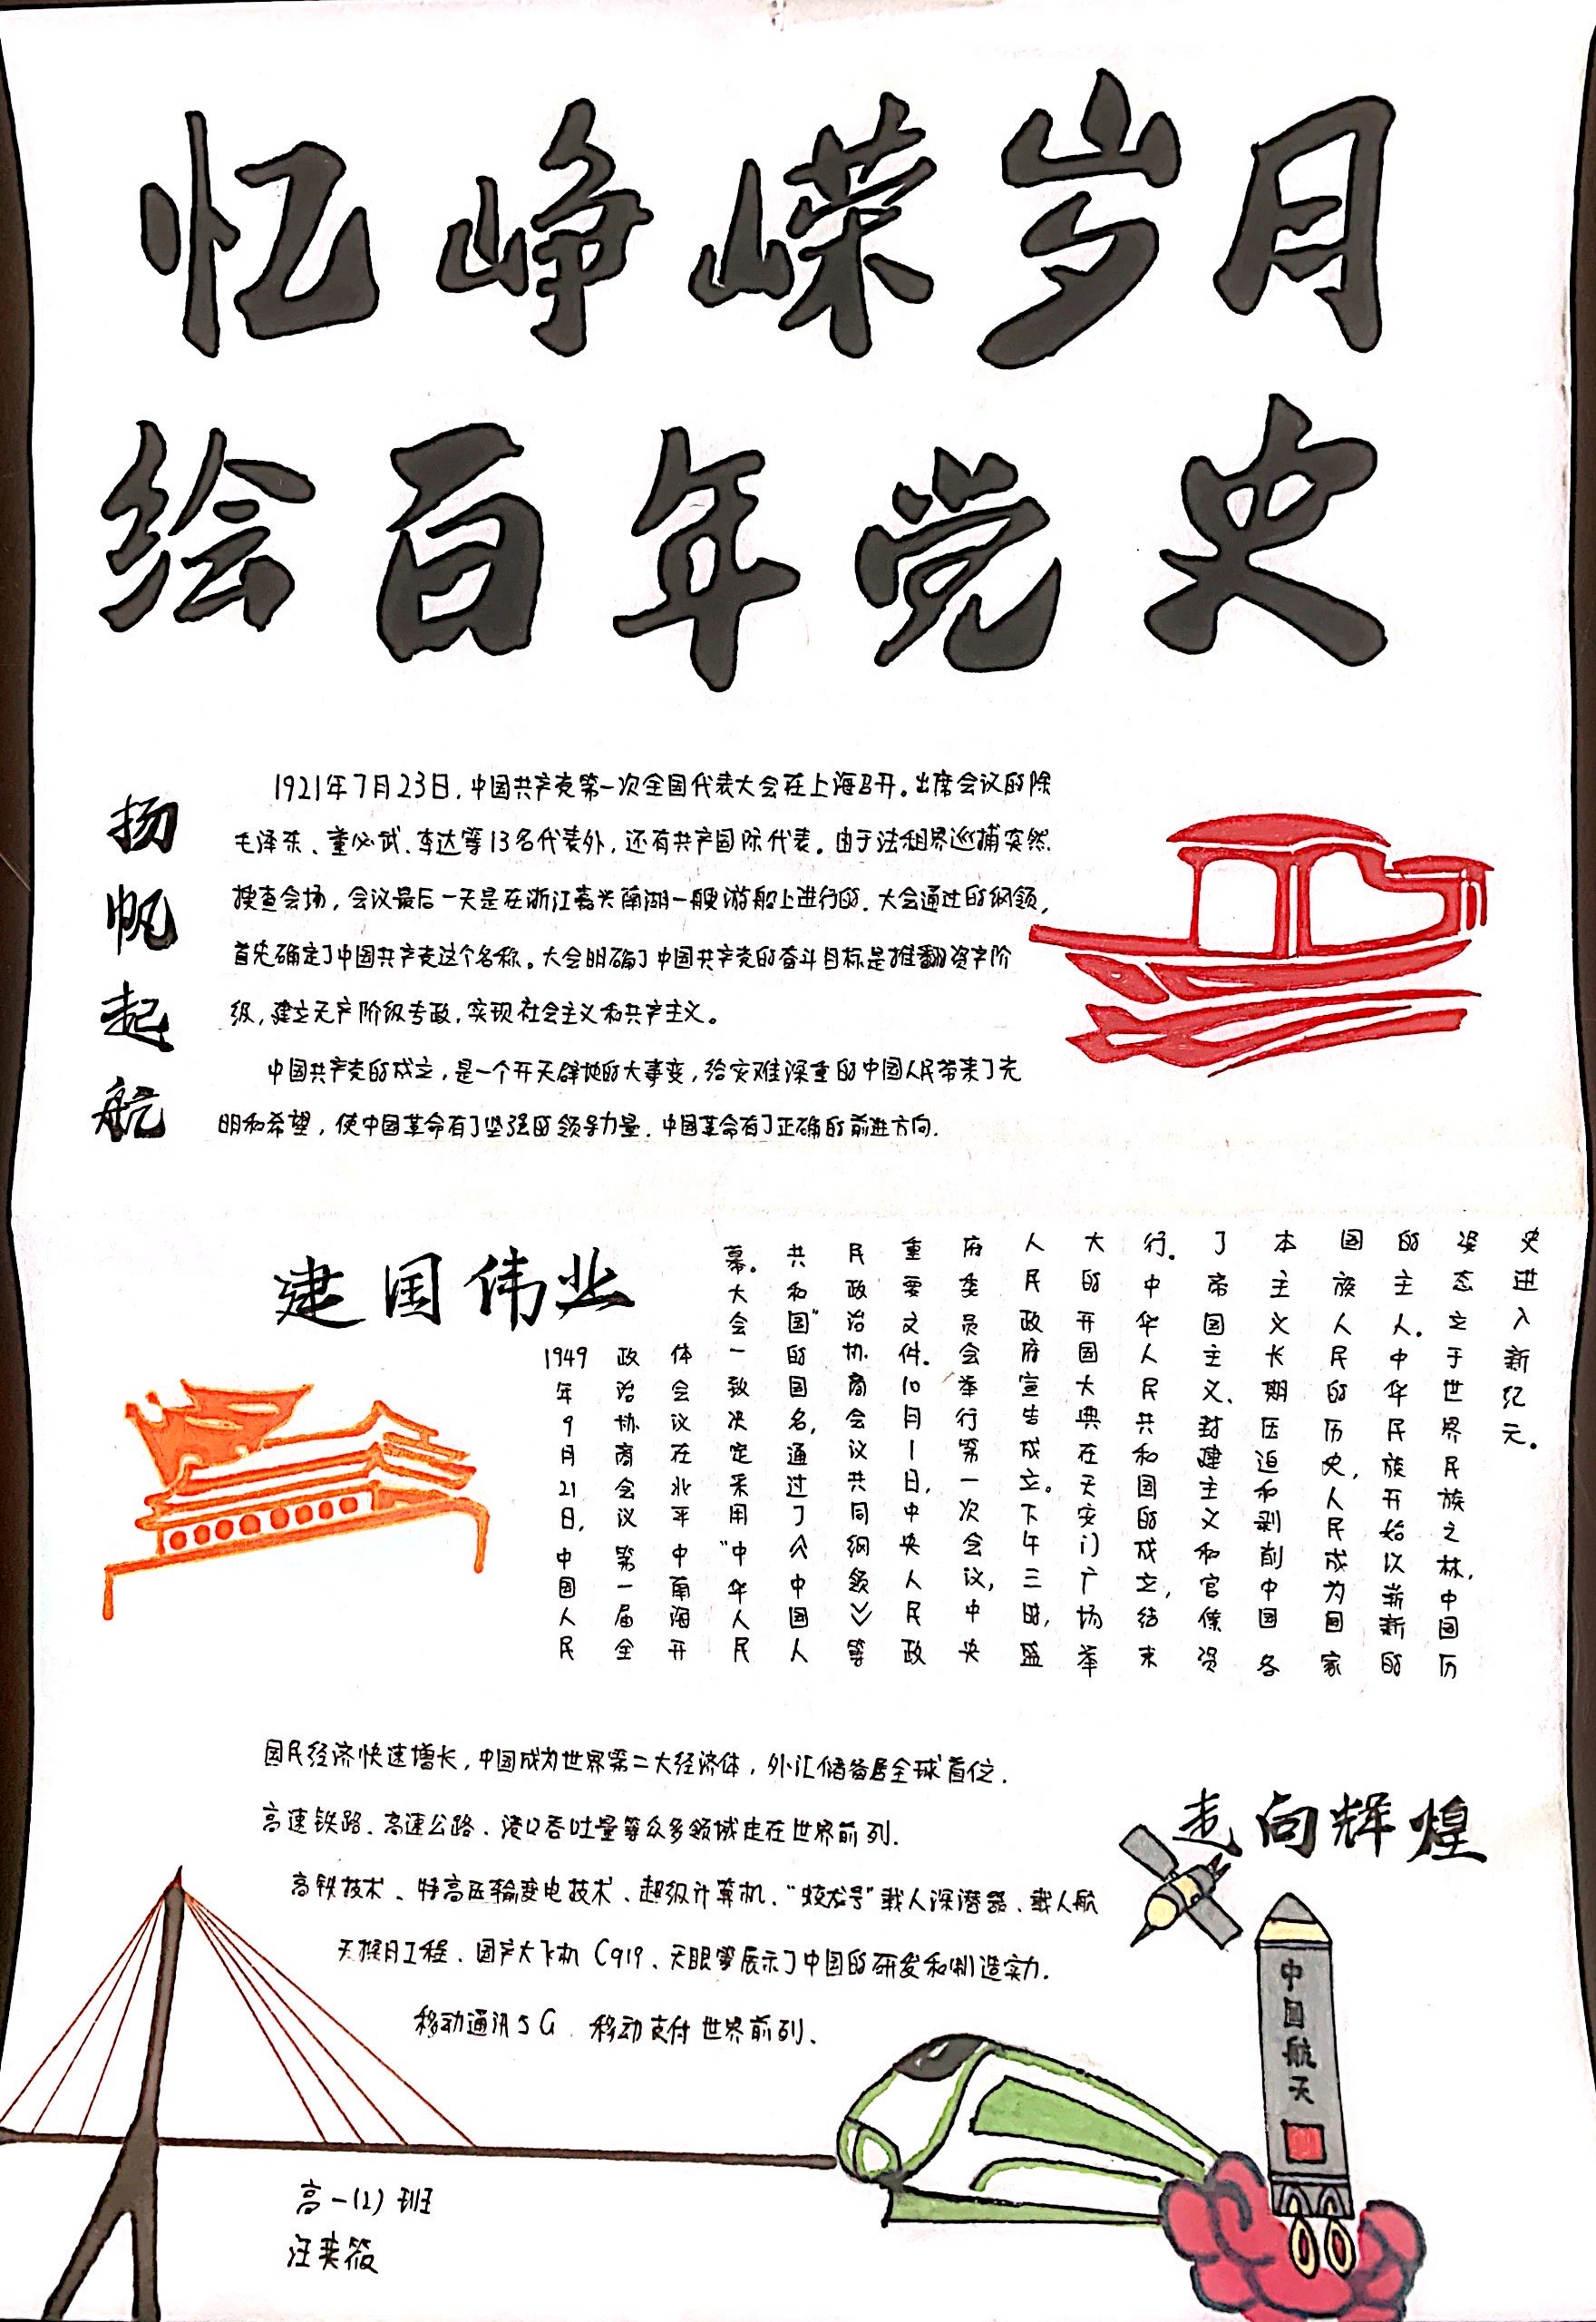 忆峥嵘岁月
绘百年党史
扬帆起航
1921年7月23日,中国共产党第一次全国代表大会在上海召开。出席会议的除
毛泽东、董必武、李达等13名代表外,还有共产国际代表。由于法租界巡捕突然
搜查会场,会议最后一天是在浙江嘉兴南湖一艘游船上进行的。大会通过的纲领,
首先确定了中国共产党这个名称。大会明确了中国共产党的奋斗目标是推翻资产阶
级,建立无产阶级专政,实现社会主义和共产主义。
中国共产党的成立,是一个开天辟地的大事变,给灾难深重的中国人民带来了光
明和希望,使中国革命有了坚强的领导力量,中国革命有了正确的前进方向.
建国伟业
1949年9月21日,中国人民
政治协商会议第一届全
体会议在北平中南海开
幕。大会一致决定采用"中华人民
共和国"的国名,通过了《中国人
民政治协商会议共同纲领》等
重要文件。10月1日,中央人民政
府委员会举行第一次会议,中央
人民政府宣告成立。下午三时,盛
大的开国大典在天安门广场举
行。中华人民共和国的成立,结束
了帝国主义、封建主义和官僚资
本主义长期压迫和剥削中国各
国族人民的历史,人民成为国家
的主人。中华民族开始以崭新的
姿态立于世界民族之林,中国历
史进入新纪元。
国民经济快速增长,中国成为世界第二大经济体,外汇储备居全球首位.
高速铁路、高速公路、港口吞吐量等众多领域走在世界前列.
走向辉煌
高铁技术、特高压输变电技术、超级计算机、"蛟龙号"载人深潜器、载人航
天探月工程、国产大飞机C919、天眼等展示了中国的研发和制造实力.
移动通讯5G、移动支付世界前列.
中国航天
高一(1)班